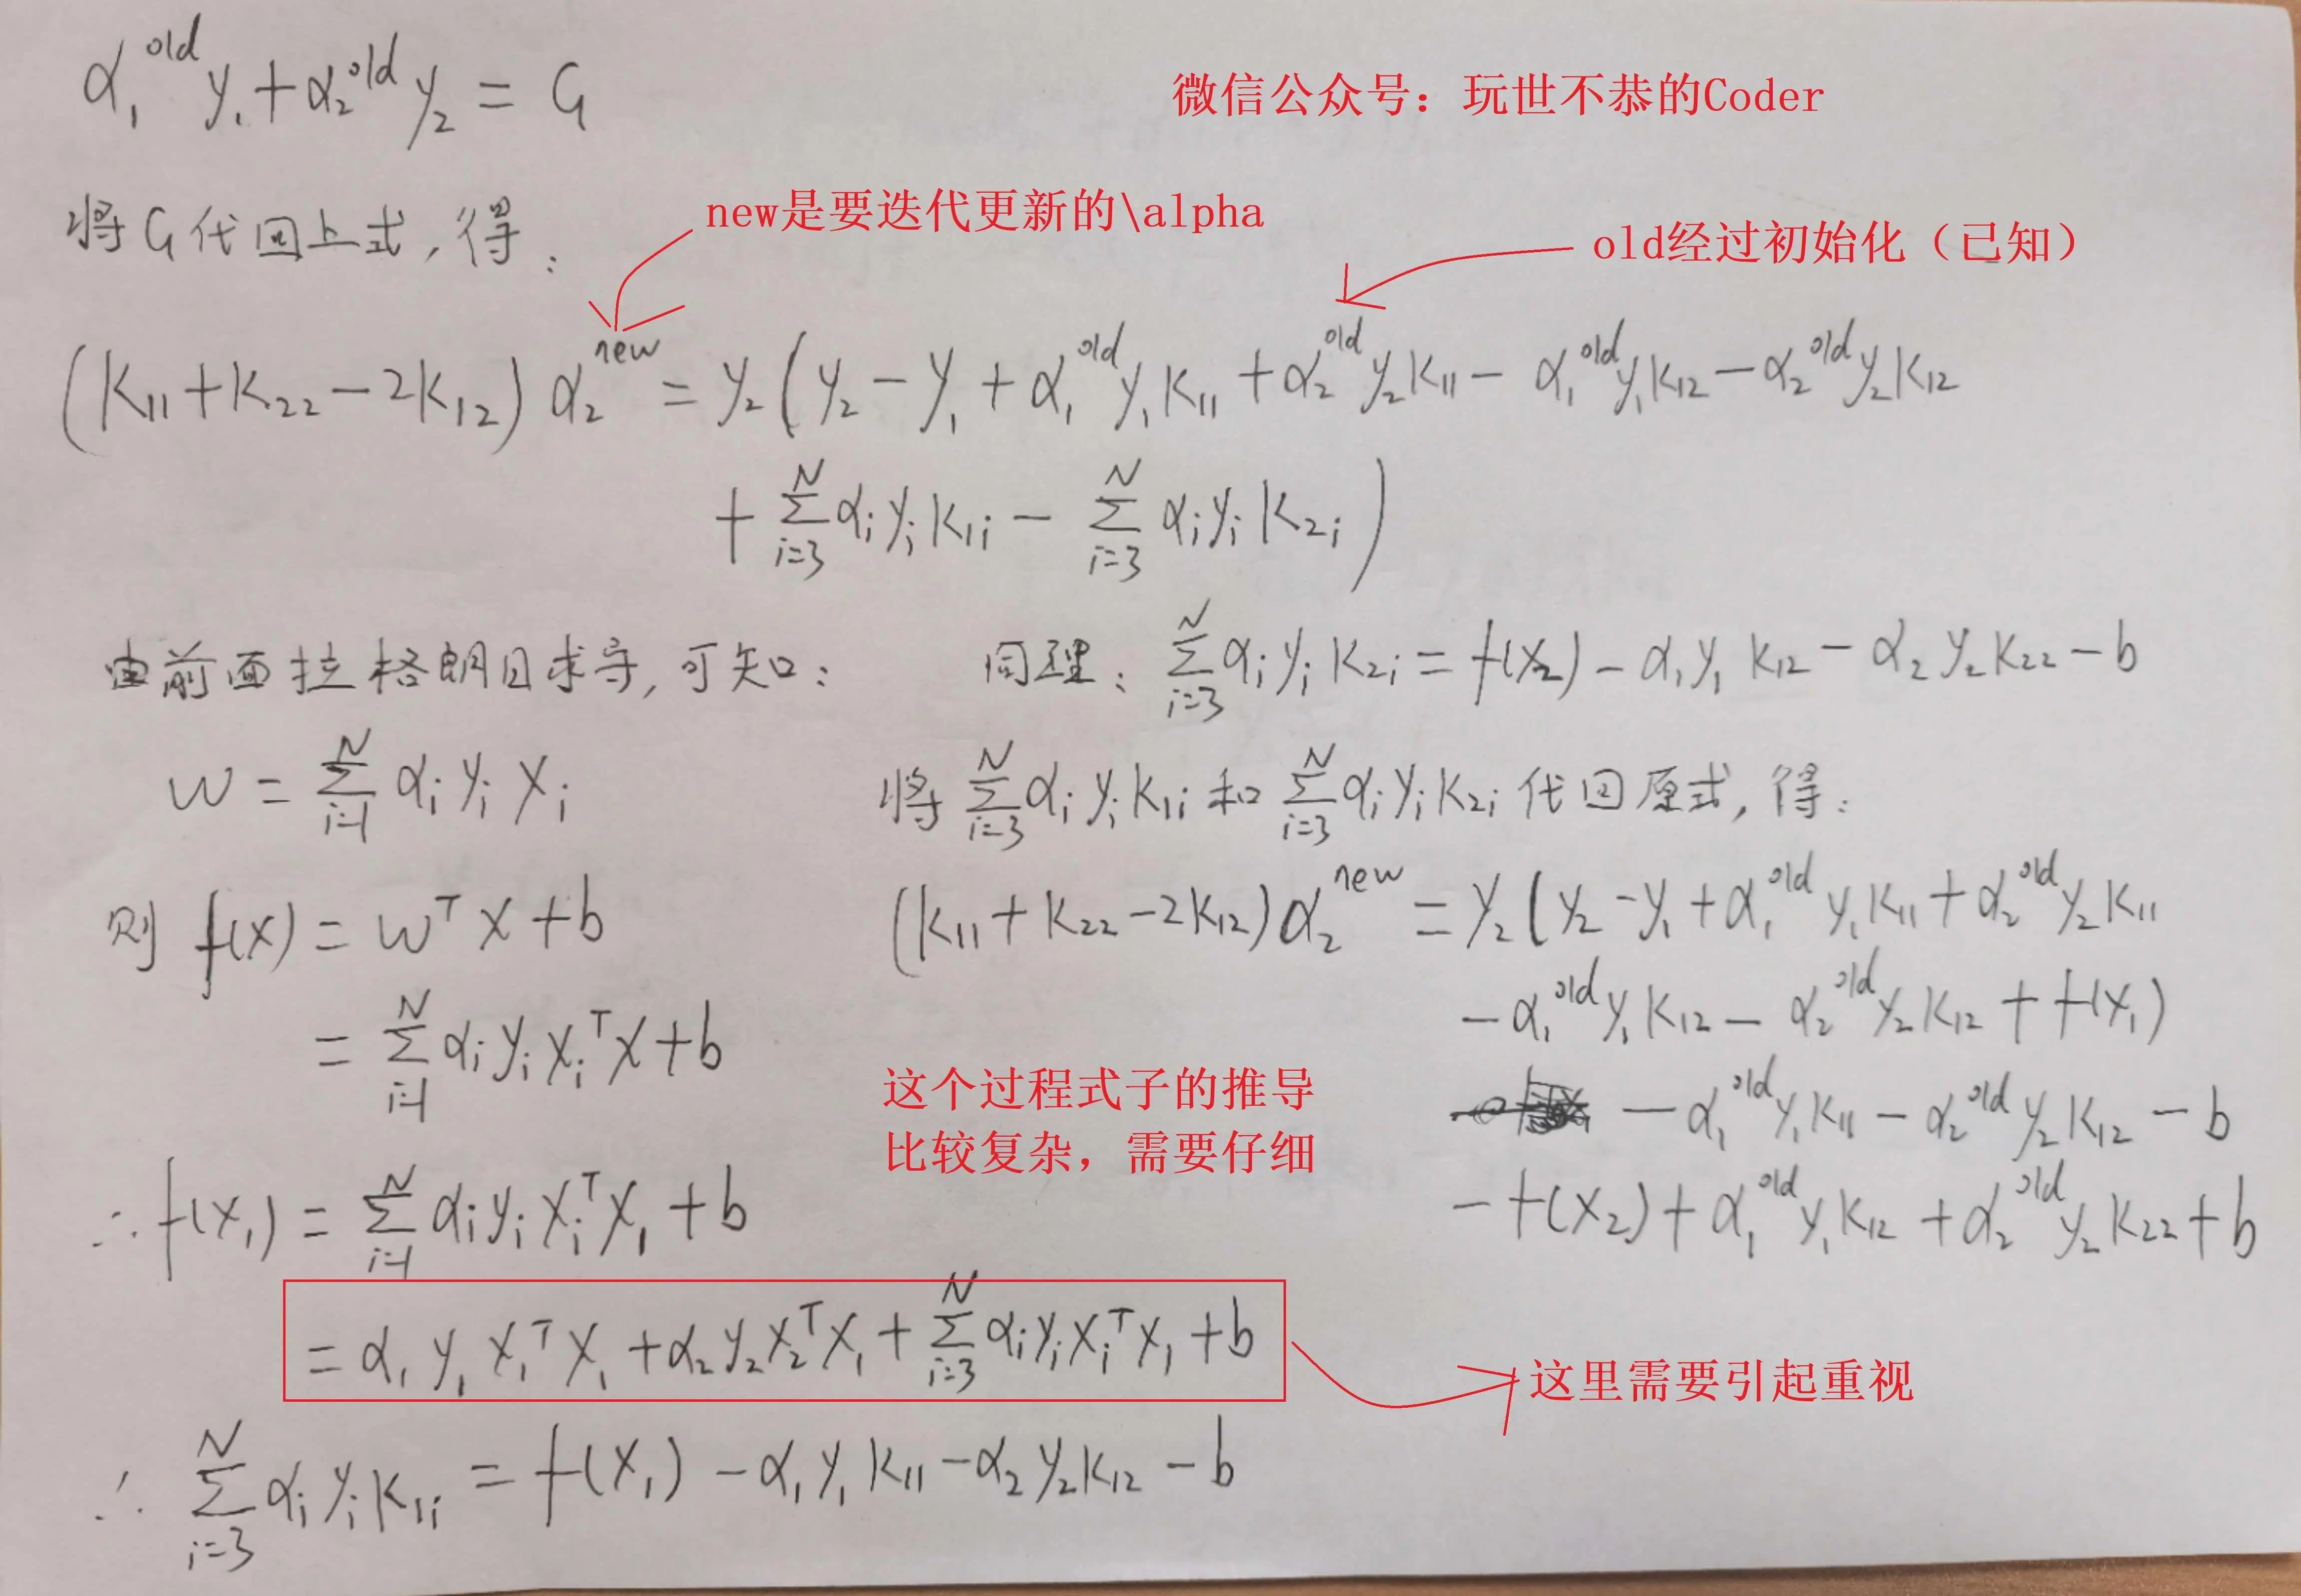 α₁^old y₁ + α₂^old y₂ = G
微信公众号：玩世不恭的Coder
将G代回上式，得：
new是要迭代更新的\alpha
old经过初始化（已知）
(K₁₁ + K₂₂ - 2K₁₂) α₂^new = y₂(y₂ - y₁ + α₁^old y₁K₁₁ + α₂^old y₂K₁₁ - α₁^old y₁K₁₂ - α₂^old y₂K₁₂
+ ∑_{i=3}^N αᵢyᵢK₁ᵢ - ∑_{i=3}^N αᵢyᵢK₂ᵢ)
由前面拉格朗日求导，可知：
w = ∑_{i=1}^N αᵢyᵢxᵢ
则 f(x) = wᵀx + b
= ∑_{i=1}^N αᵢyᵢxᵢᵀx + b
∴ f(x₁) = ∑_{i=1}^N αᵢyᵢxᵢᵀx₁ + b
= α₁y₁x₁ᵀx₁ + α₂y₂x₂ᵀx₁ + ∑_{i=3}^N αᵢyᵢxᵢᵀx₁ + b
∴ ∑_{i=3}^N αᵢyᵢK₁ᵢ = f(x₁) - α₁y₁K₁₁ - α₂y₂K₁₂ - b
同理：∑_{i=3}^N αᵢyᵢK₂ᵢ = f(x₂) - α₁y₁K₁₂ - α₂y₂K₂₂ - b
将 ∑_{i=3}^N αᵢyᵢK₁ᵢ 和 ∑_{i=3}^N αᵢyᵢK₂ᵢ 代回原式，得：
(K₁₁ + K₂₂ - 2K₁₂) α₂^new = y₂(y₂ - y₁ + α₁^old y₁K₁₁ + α₂^old y₂K₁₁
- α₁^old y₁K₁₂ - α₂^old y₂K₁₂ + f(x₁)
- α₁^old y₁K₁₁ - α₂^old y₂K₁₂ - b
- f(x₂) + α₁^old y₁K₁₂ + α₂^old y₂K₂₂ + b
这个过程式子的推导
比较复杂，需要仔细
这里需要引起重视